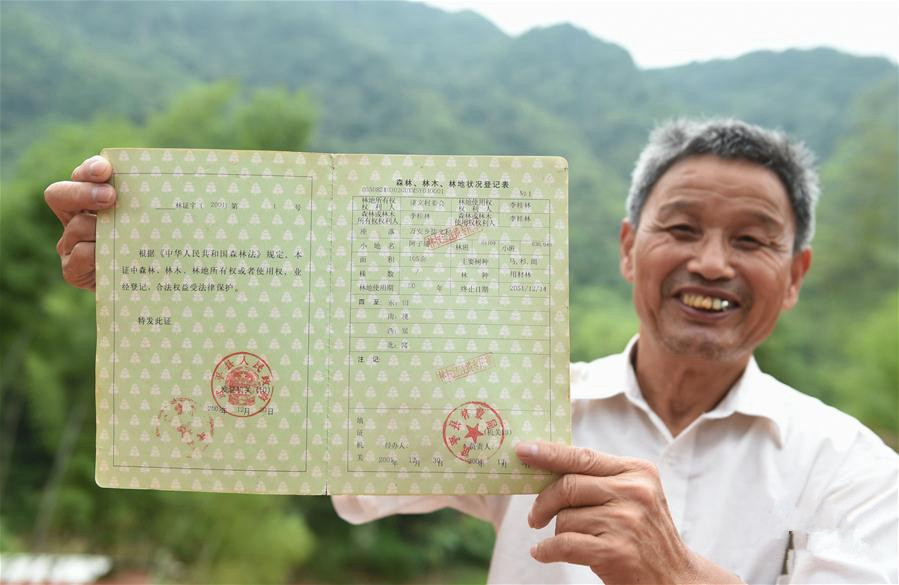 林证字（2001）第 1 号
根据《中华人民共和国森林法》规定，本
证中森林、林木、林地所有权或者使用权，业
经登记，合法权益受法律保护。
特发此证
发证机关（印）
年12月 日
森林、林木、林地状况登记表
No 1
林地所有权
权利人
村委会
林地使用权
权利人
李桂林
森林或林木
所有权权利人
李桂林
森林或林木
使用权权利人
李桂林
座落
小地名
林班
小班
面积
105亩
主要树种
马.杉.阔
株数
林种
用材林
林地使用期
50 年
终止日期
2051/12/14
四至
东:田
南:
西:
北:窝
注记:
填
证
机
关
经办人:
负责人:
(机关章)
2001年 12月 30日
年 12月 日